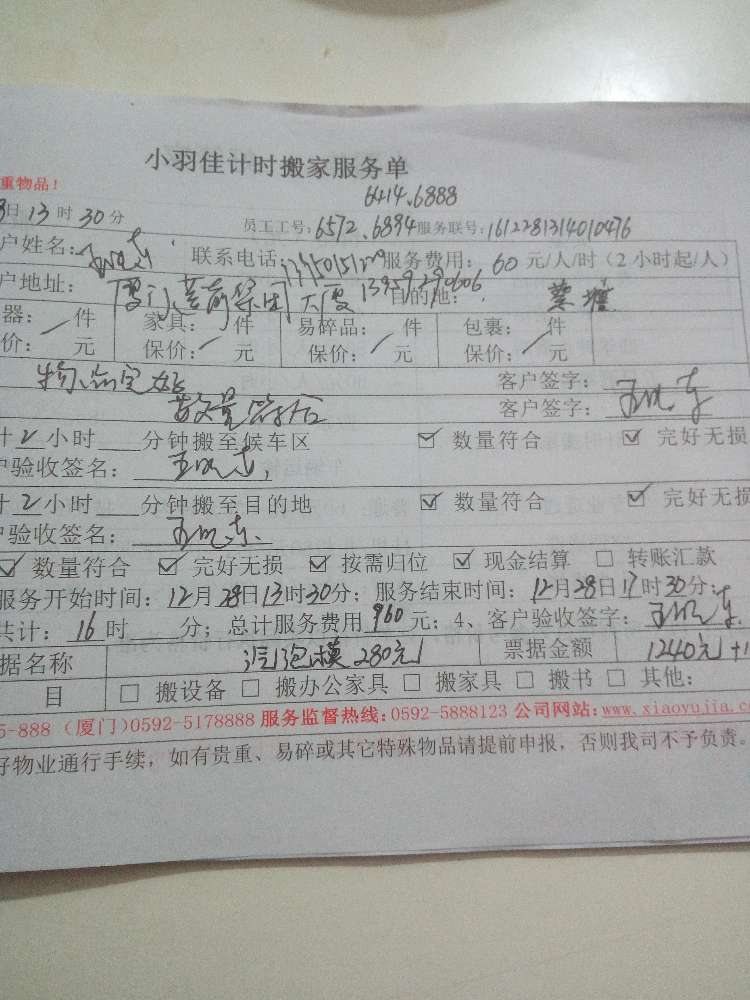 小羽佳计时搬家服务单
重物品！
6414.6888
日13时30分 员工工号：6572.6894服务联号：1612281314010476
户姓名： 联系电话： 服务费用：60元/人/时（2小时起/人）
户地址： 大厦 目的地：蔡塘
器： 件 家具： 件 易碎品： 件 包裹： 件
价： 元 保价： 元 保价： 元 保价： 元
物品完好 客户签字：
数量符合 客户签字：
计2小时___分钟搬至候车区 ☑ 数量符合 ☑ 完好无损
户验收签名：
计2小时___分钟搬至目的地 ☑ 数量符合 ☑ 完好无损
户验收签名：
☑ 数量符合 ☑ 完好无损 ☑ 按需归位 ☑ 现金结算 □ 转账汇款
服务开始时间：12月28日13时30分；服务结束时间：12月28日17时30分；
共计：16时___分；总计服务费用960元；4、客户验收签字：
据名称 汽泡模280元 票据金额 1240元+1
目 □ 搬设备 □ 搬办公家具 □ 搬家具 □ 搬书 □ 其他：
5-888（厦门）0592-5178888 服务监督热线：0592-5888123 公司网站：www.xiaoyujia.c
好物业通行手续，如有贵重、易碎或其它特殊物品请提前申报，否则我司不予负责。